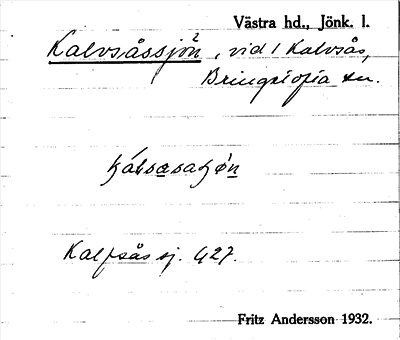 Västra hd., Jönk. l.
Kalvsåssjön, vid 1 Kalvsås,
Bringetofta sn.
Kalfsås sj. 427.
Fritz Andersson 1932.